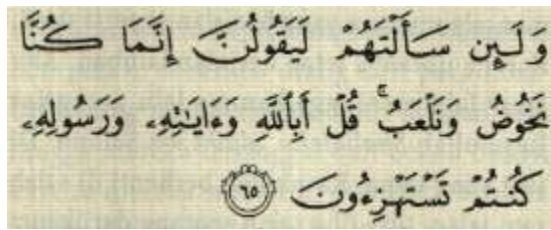 وَلَئِن سَأَلْتَهُمْ لَيَقُولُنَّ إِنَّمَا كُنَّا
نَخُوضُ وَنَلْعَبُ ۚ قُلْ أَبِٱللَّهِ وَءَايَٰتِهِۦ وَرَسُولِهِۦ
كُنتُمْ تَسْتَهْزِءُونَ ٦٥